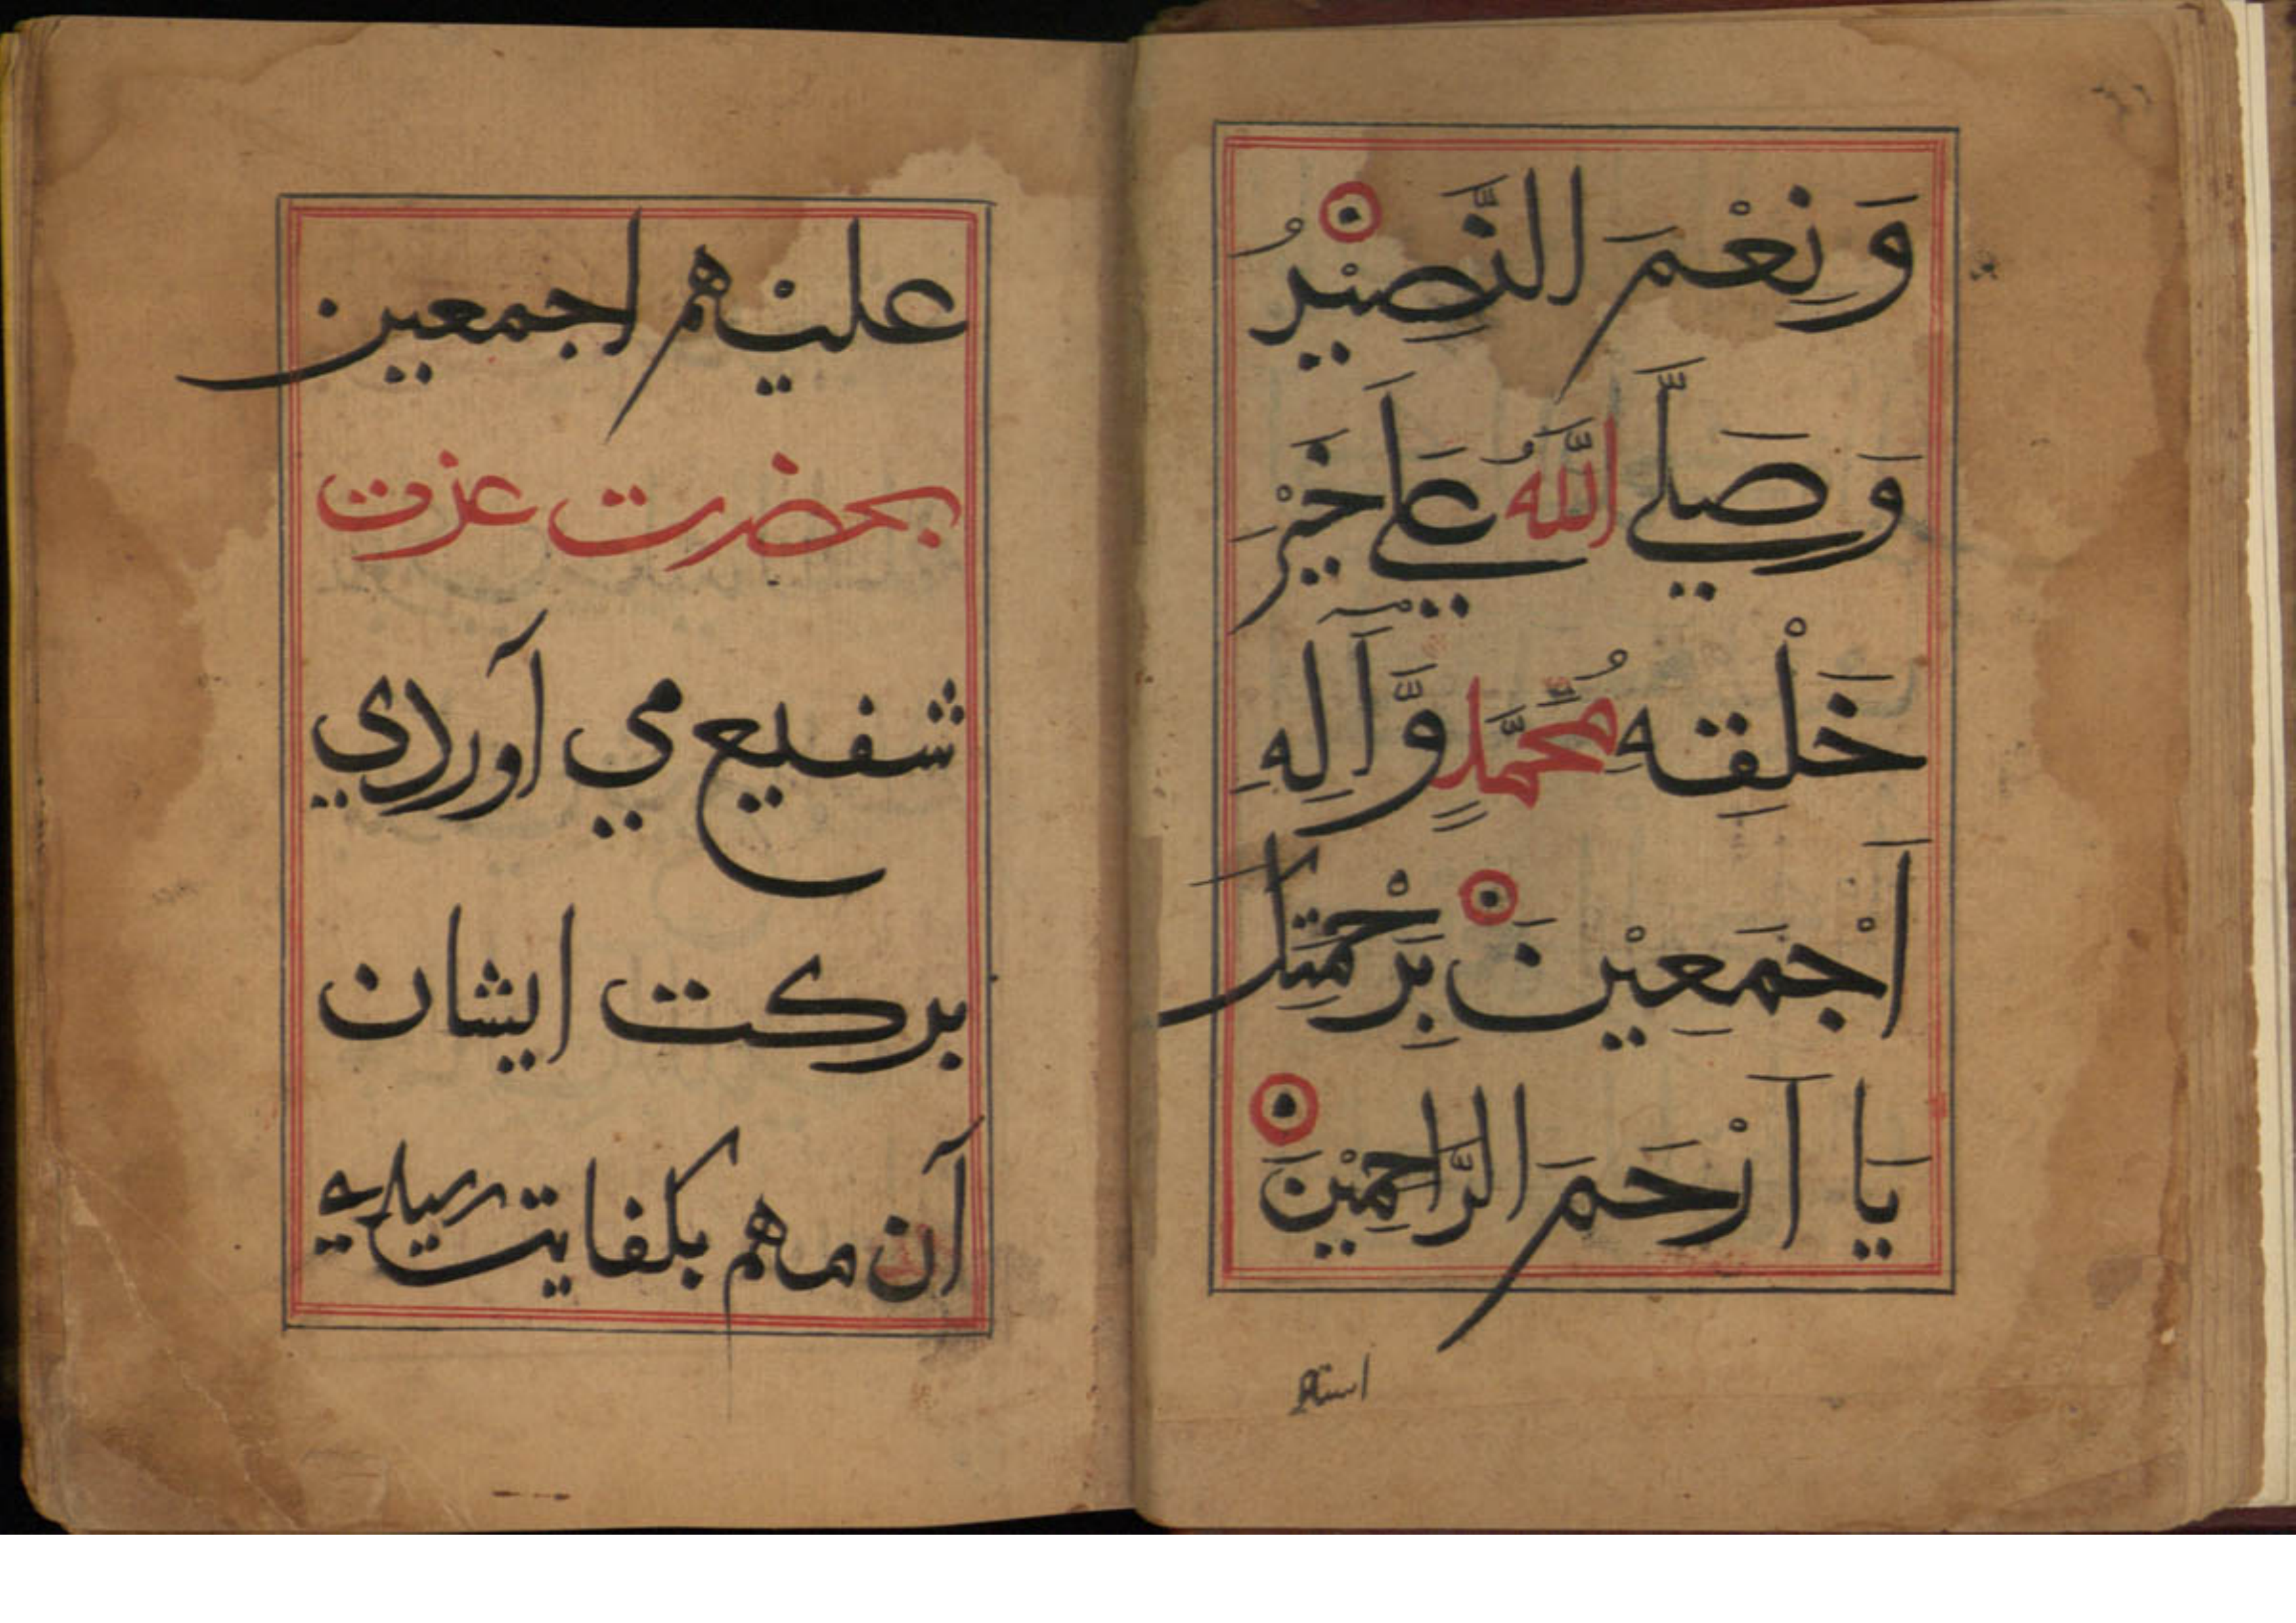 وَنِعْمَ النَّصِيْرُ
وَصَلَّي اللَّهُ عَلَي خَيْرِ
خَلْقِهِ مُحَمَّدٍ وَّآلِهِ
اَجْمَعِيْنَ بِرَحْمَتِكَ
يَا اَرْحَمَ الرَّاحِمِيْنَ
عليهم اجمعين
بحضرت عزت
شفيع مي آوردي
بركت ايشان
آن مهم بكفايت